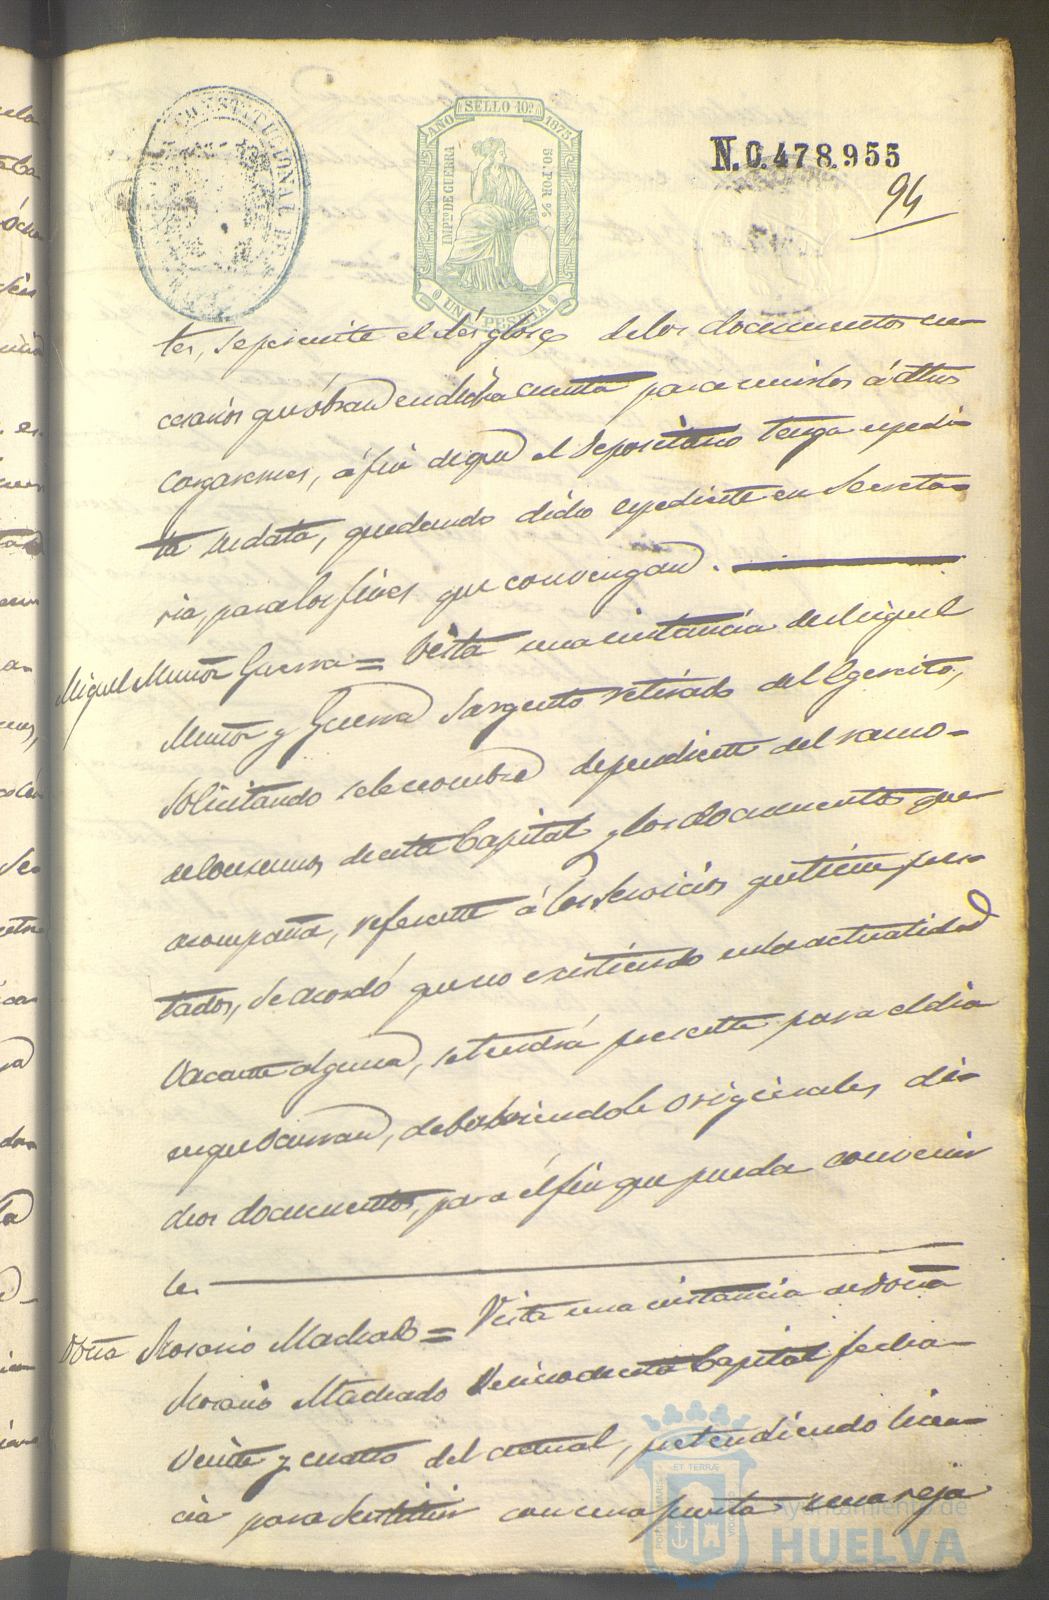 CONSTITUCIONAL
AÑO SELLO 10º 1875
IMPTO DE GUERRA
50. POR %
UNA PESETA
N. 0.478.955
94
tes, se permite el desglose de los documentos ne-
cesarios que óbran en dicha cuenta para unirlos á otros
cargaremes, á fin de que el Depositario tenga espedi-
ta su data, quedando dicho espediente en Secreta-
ria, para los fines que convengan.
Miguel Muñoz Guerra = Vista una instancia de Miguel
Muñoz y Guerra Sargento retirado del Egercito,
solicitando se le nombre dependiente del ramo-
de Consumos de esta Capital y los documentos que
acompaña, referente á los Servicios que tiene pres-
tados, se acordó que no existiendo en la actualidad
vacante alguna, se tendrá presente para el dia
en que ocurran, debolviendole originales di-
chos documentos, para él fin que pueda convenir
le.
Doña Rosario Machado = Vista una instancia de Doña
Rosario Machado Vecino de esta Capital fecha-
veinte y cuatro del actual, pretendiendo licen-
cia para Sustituir con una puerta una reja
Ayuntamiento de
HUELVA